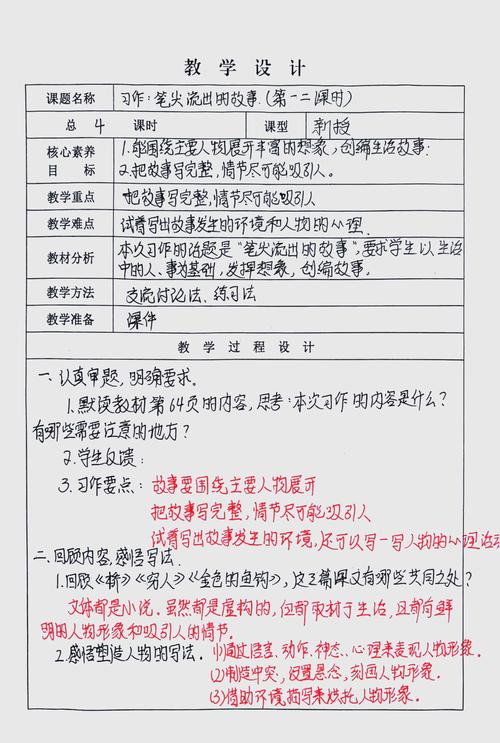 教学设计
课题名称 习作：笔尖流出的故事.(第一二课时)
总 4 课时 课型 新授
核心素养目标 1.能围绕主要人物展开丰富的想象，创编生活故事；
2.把故事写完整，情节尽可能吸引人。
教学重点 把故事写完整，情节尽可能吸引人
教学难点 试着写出故事发生的环境和人物的心理.
教材分析 本次习作的话题是“笔尖流出的故事”，要求学生以生活
中的人、事为基础，发挥想象，创编故事。
教学方法 交流讨论法、练习法
教学准备 课件
教学过程设计
一、认真审题，明确要求。
1.默读教材第64页的内容，思考：本次习作的内容是什么？
有哪些需要注意的地方？
2.学生反馈：
3.习作要点：故事要围绕主要人物展开
把故事写完整，情节尽可能吸引人
试着写出故事发生的环境，还可以写一写人物的心理活动
二、回顾内容，感悟写法.
1.回顾《桥》《穷人》《金色的鱼钩》，这3篇课文有哪些共同之处？
文体都是小说.虽然都是虚构的，但都取材于生活，且都有鲜
明的人物形象和吸引人的情节.
2.感悟塑造人物的写法。(1)通过语言、动作、神态、心理来表现人物形象.
(2)制造冲突，设置悬念，刻画人物形象.
(3)借助环境描写来烘托人物形象.